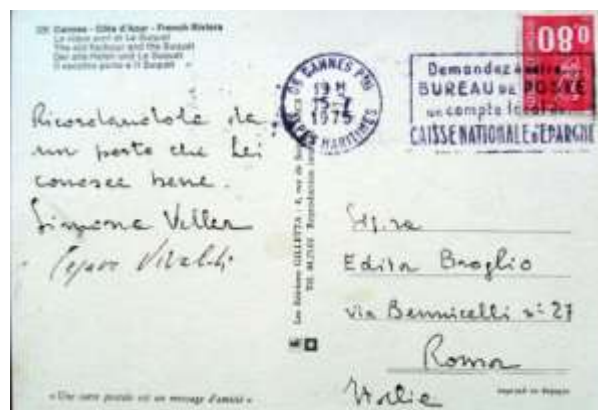 Cannes - Côte d'Azur - French Riviera
Le vieux port et Le Suquet
The old harbour and the Suquet
Der alte Hafen und Le Suquet
Il vecchio porto e il Suquet
Ricordandola da
un posto che Lei
conosce bene.
Simona Weller
Cesare Vivaldi
« Une carte postale est un message d'amitié »
Les Editions GILLETTA
06 CANNES PPAL
19 H
15-7
1975
ALPES MARITIMES
Demandez à votre
BUREAU DE POSTE
un compte
CAISSE NATIONALE D'EPARGNE
0.80
Sig.ra
Edita Broglio
via Bennicelli n° 27
Roma
Italia